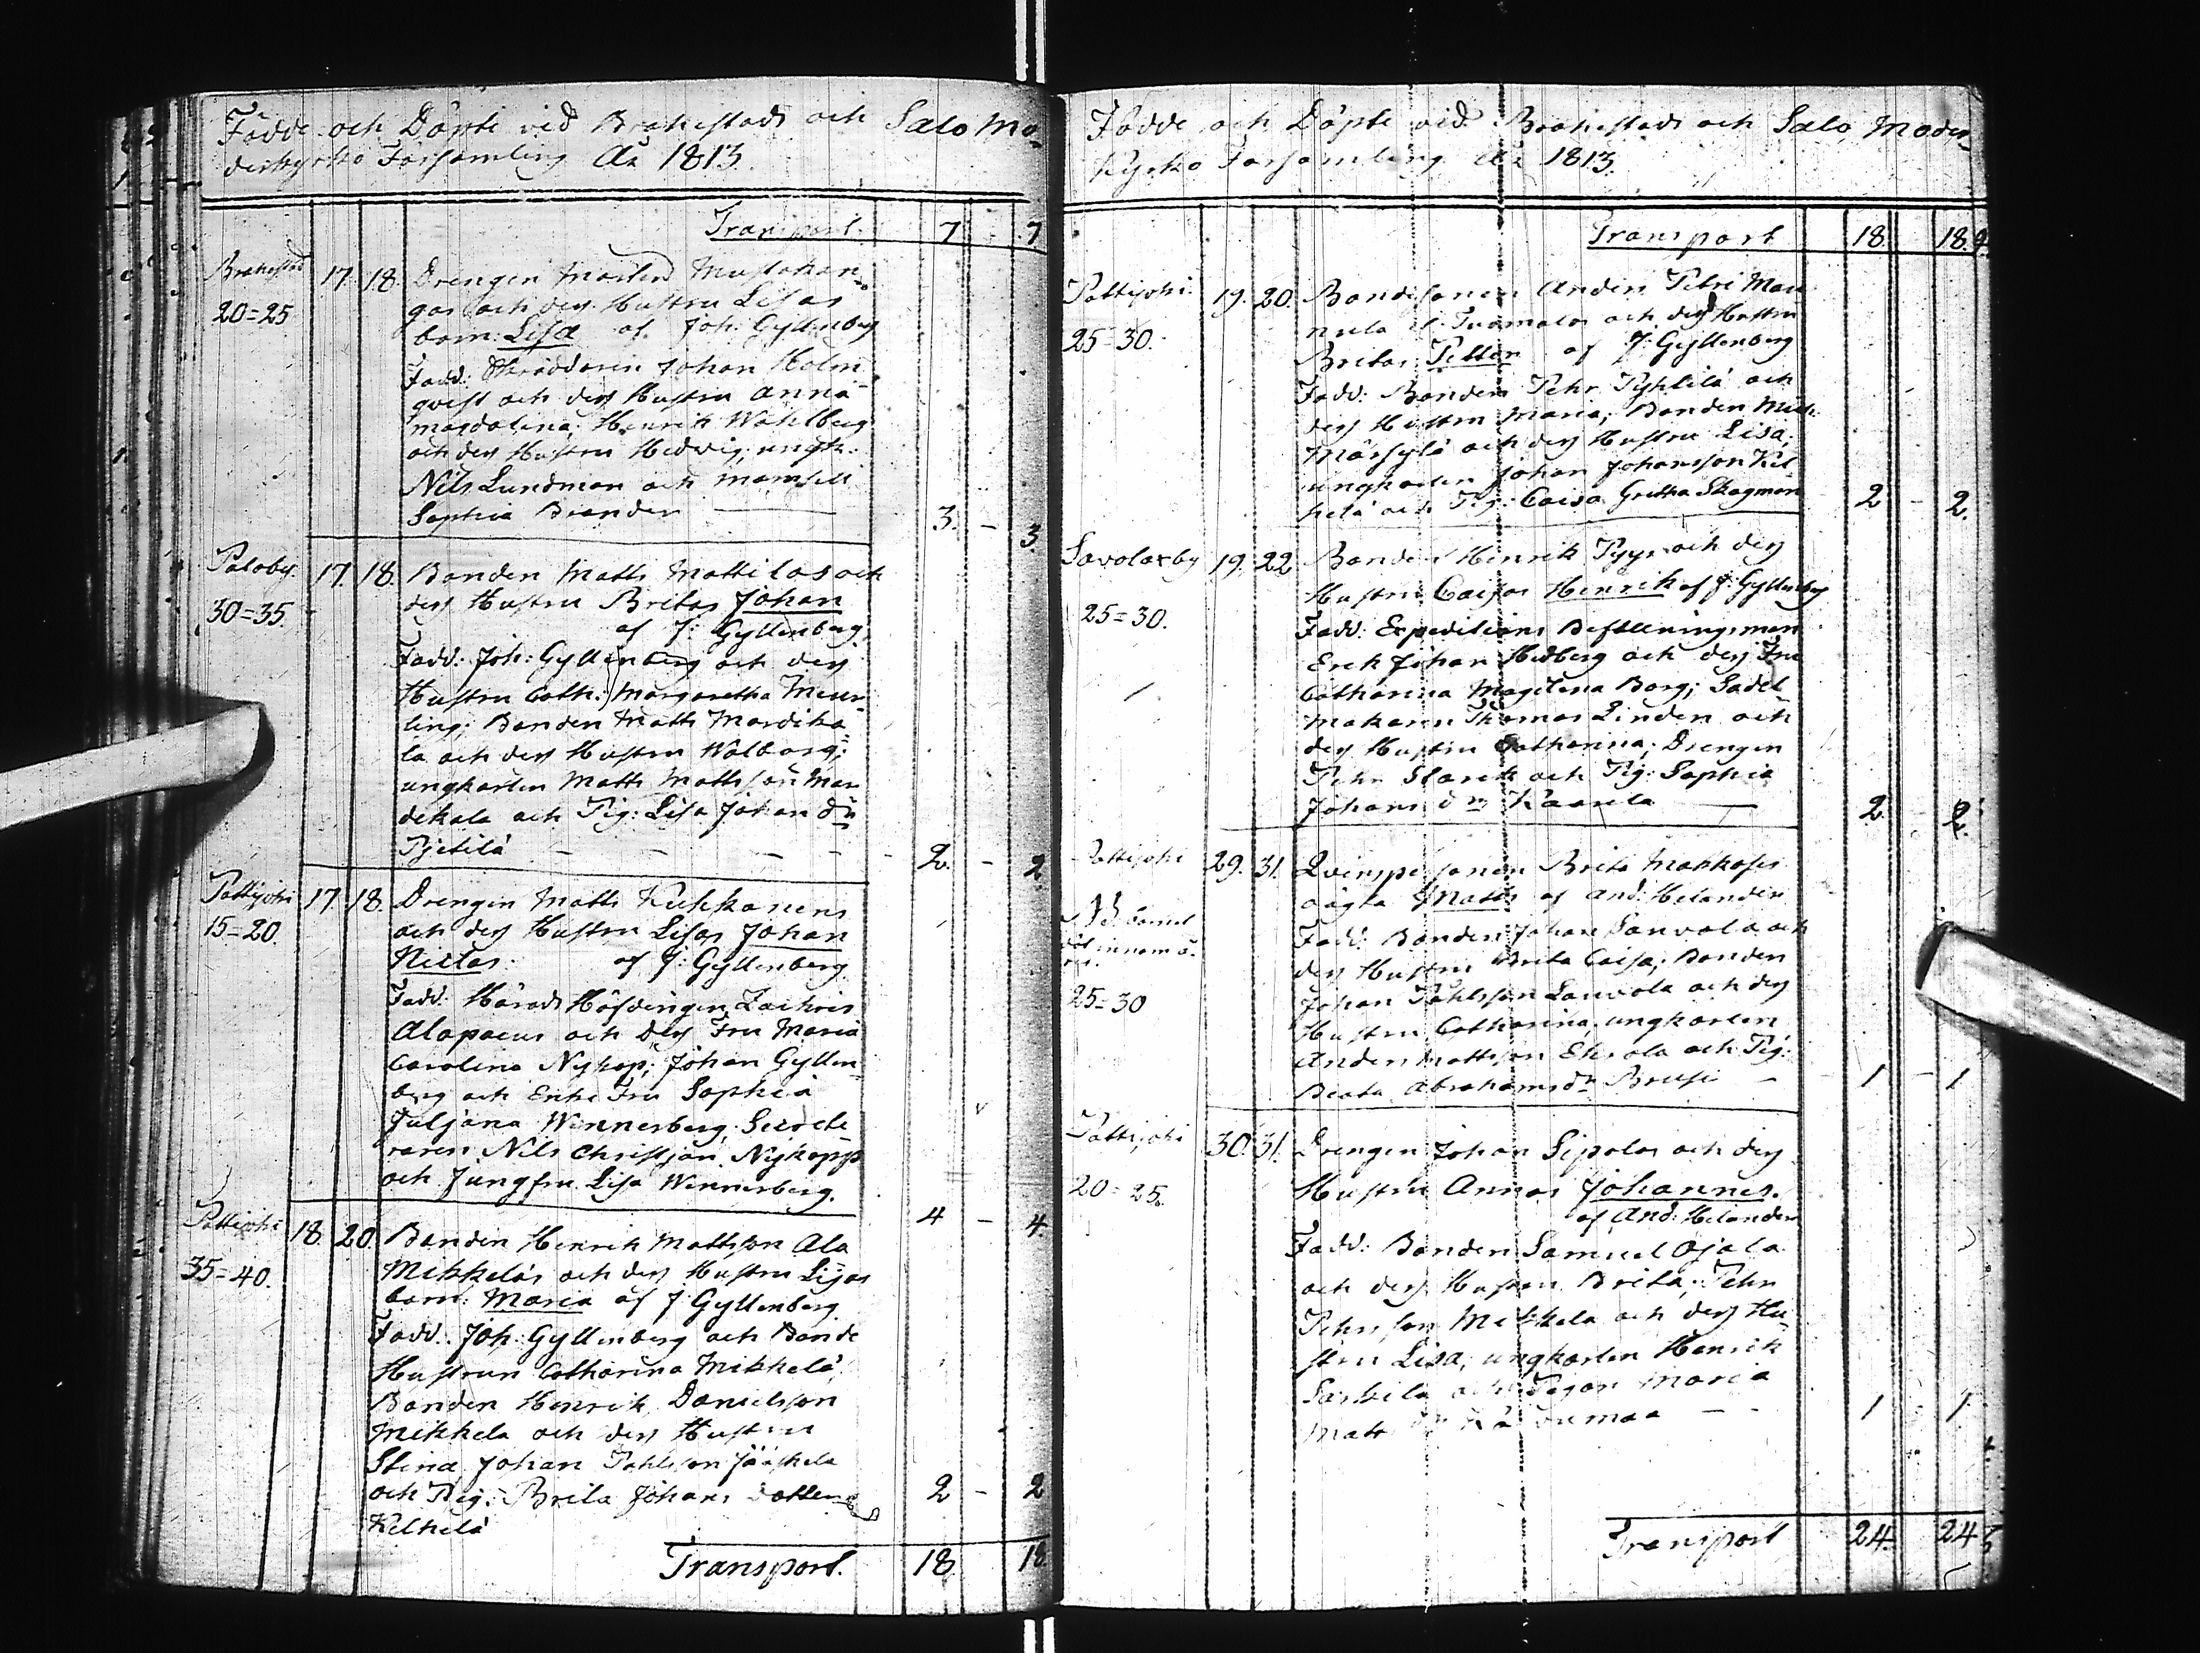 Födde och Döpte vid Brahestads och Salo Mo-
derkyrko Församling År 1813.
Transport. 7 - 7
Brahestad 17. 18. Drengen Mårten Mustakan-
20=25 gas och dess Hustru Lisas
barn: Lisa af Joh: Gyllenberg
Fadd: Skräddaren Johan Holm-
qvist och dess Hustru Anna
Magdalena; Henrik Wahlberg
och dess Hustru Hedvig; ungk:
Nils Lundman och Mamsell
Sophia Brander 3. - 3.
Paloby. 17. 18. Bonden Matts Mattilas och
30=35. dess Hustru Britas Johan
af J: Gyllenberg
Fadd: Joh: Gyllenberg och dess
Hustru Cath: Margaretha Meur-
ling; Bonden Matts Mardika-
la och dess Hustru Walborg;
ungkarlen Matts Mattsson Mar
dekala och Pig: Lisa Johan dr
Pjetilä - - - - 2. - 2
Pattijoki 17. 18. Drengen Matts Kukkonens
15=20. och dess Hustru Lisas Johan
Niclas. af J: Gyllenberg
Fadd: Härads Höfdingen Zachris
Alopaeus och Dess Fru Maria
Carolina Nykop; Johan Gyllen-
berg och Enke Fru Sophia
Juljana Wennerberg, Secrete-
raren Nils Christjan Nykopp
och Jungfru Lisa Wennerberg. 4 - 4.
Pattijoki 18. 20. Bonden Henrik Mattsson Ala
35=40. Mikkeläs och dess Hustru Lisas
barn: Maria af J: Gyllenberg
Fadd: Joh: Gyllenberg och Bonde
Hustrun Catharina Mikkelä;
Bonden Henrik Danielsson
Mikkela och dess Hustru
Stina, Johan Pahlsson Jääskela
och Pig: Brita Johans dotter
Kelkelä 2 - 2
Transport. 18. 18
Födde och Döpte vid Brahestads och Salo Moder-
Kyrko Församling År 1813.
Transport 18. 18.
Pattijoki 19. 20. Bondesonen Anders Petri Man
25=30. nila l. Tuomalas och dess Hustru
Britas Petter af J: Gyllenberg
Fadd: Bonden Pehr Pyhlilä och
dess Hustru Maria; Bonden Mich:
Märsylä och dess Hustru Lisa;
ungkarlen Johan Johansson Kel
kelä och Pig: Caisa Gretha Skogman 2 - 2.
Savolaxby 19. 22 Bonden Henrik Pyys och dess
25=30. Hustru Caisas Henrik af J: Gyllenberg
Fadd: Expeditions Befallningsman
Erik Johan Hedberg och dess Fru
Catharina Magdlena Borg; Sadel-
makaren Thomas Linden och
dess Hustru Catharina; Drengen
Pehr Starck och Pig: Sophia
Johans dr Kaarela 2. 2.
Pattijoki 29. 31. Qvinspersonen Brita Makkoses
oägta Matts af And: Helander
Fadd: Bonden Johan Sauvola och
dess Hustru Brita Caisa; Bonden
25=30 Johan Pahlsson Sauvola och dess
Hustru Catharina; ungkarlen
Anders Mattsson Ekrola och Pig:
Beata Abrahamsdr Brusi - 1 - 1
Pattijoki 30. 31. Drengen Johan Sipolas och dess
20=25. Hustru Annas Johannes.
af And: Helander
Fadd: Bonden Samuel Ojala
och dess Hustru Brita; Pehr
Pehrsson Mikkela och dess Hu-
stru Lisa; ungkarlen Henrik
Sarkila och Pigan Maria
Matts - - 1 1
Transport 24. 24